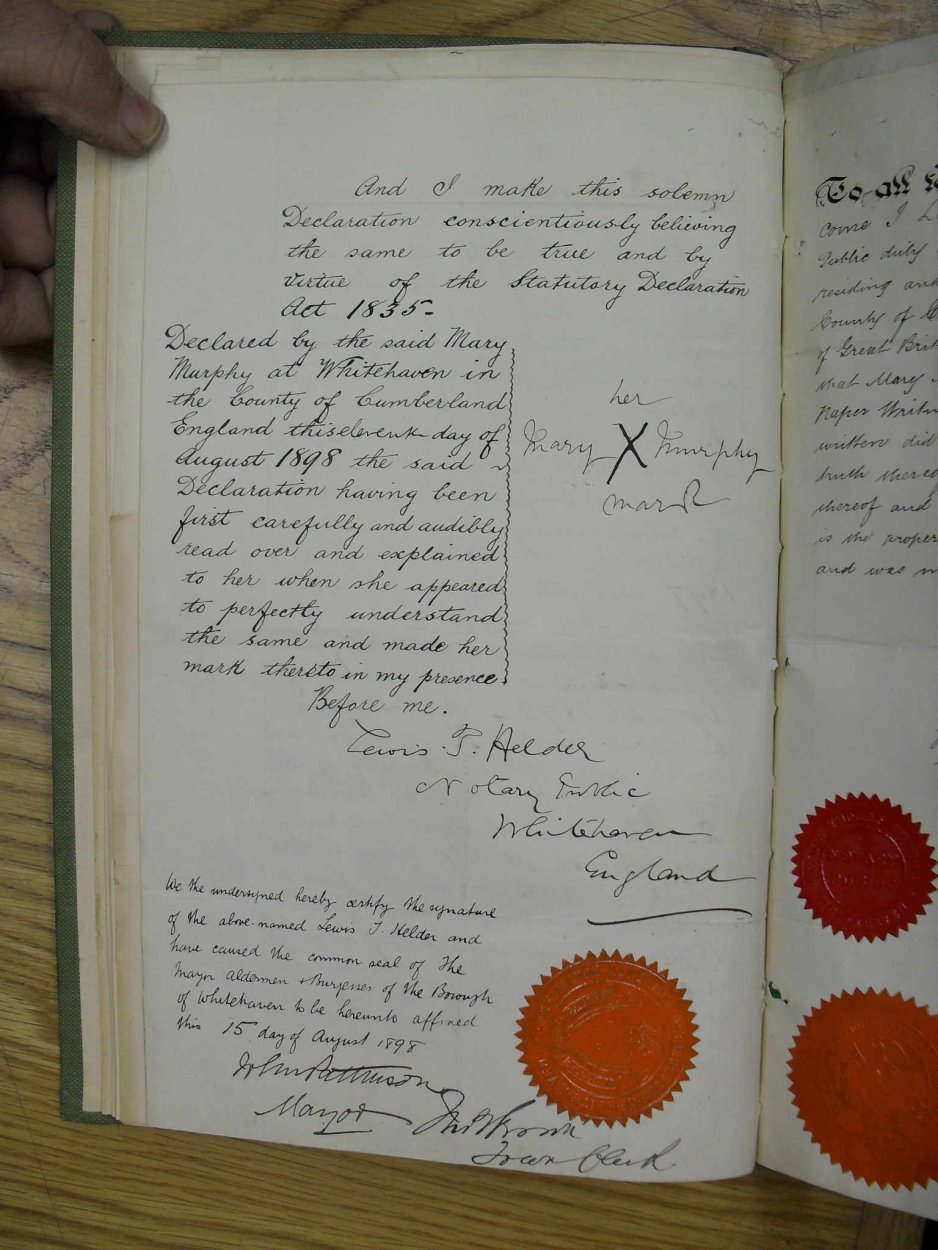 And I make this solemn
Declaration conscientiously believing
the same to be true and by
virtue of the Statutory Declaration
Act 1835-
Declared by the said Mary
Murphy at Whitehaven in
the County of Cumberland
England this eleventh day of
August 1898 the said
Declaration having been
first carefully and audibly
read over and explained
to her when she appeared
to perfectly understand
the same and made her
mark thereto in my presence.
her
Mary X Murphy
mark
Before me.
Lewis T. Helder
Notary Public
Whitehaven
England
We the undersigned hereby certify the signature
of the above-named Lewis T. Helder and
have caused the common seal of the
Mayor Aldermen + Burgesses of the Borough
of Whitehaven to be hereunto affixed
this 15 day of August 1898
Mayor
Town Clerk
To all
come I
Public duly
residing and
County of
of Great Brit
that Mary
Paper Writin
written did
truth thereo
thereof and
is the proper
and was m